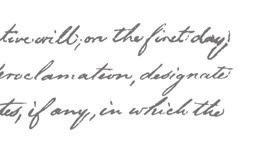 tive will, on the first day
roclamation, designate
tes, if any, in which the